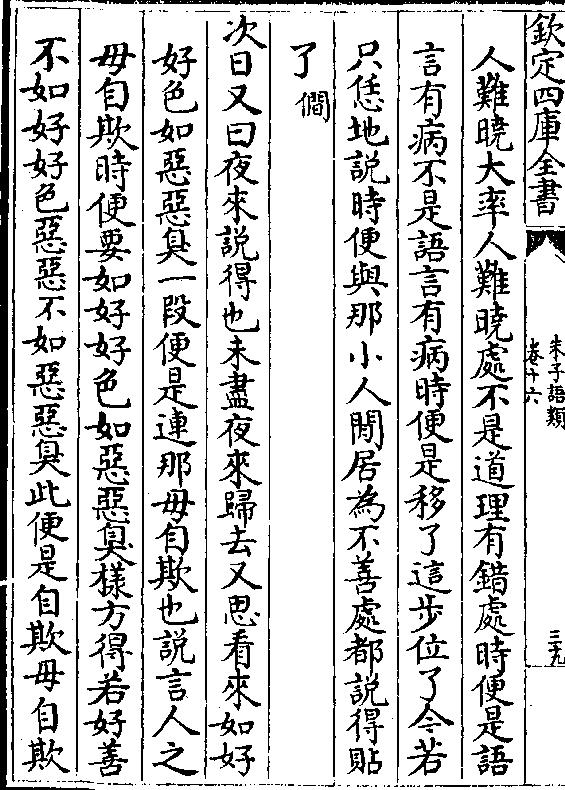 欽定四庫全書
朱子語類
卷十六
三九
人難曉大率人難曉處不是道理有錯處時便是語
言有病不是語言有病時便是移了這步位了今若
只恁地說時便與那小人閒居為不善處都說得貼
了僩
次日又曰夜來說得也未盡夜來歸去又思看來如好
好色如惡惡臭一段便是連那毋自欺也說言人之
毋自欺時便要如好好色如惡惡臭樣方得若好善
不如好好色惡惡不如惡惡臭此便是自欺毋自欺